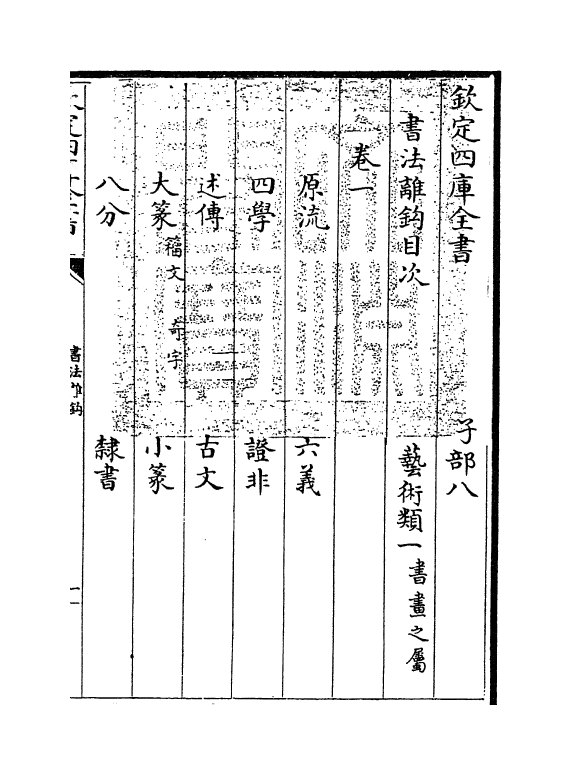 欽定四庫全書　子部八
書法離鈎目次　藝術類一書畫之屬
卷一
原流　六義
四學　證非
述傳　古文
大篆籒文　奇字　小篆
八分　隸書
書法離鈎